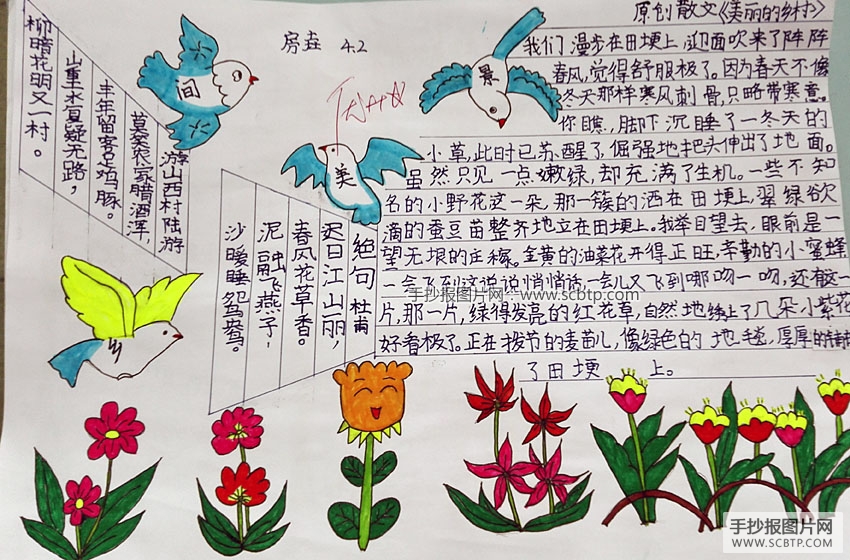 原创散文《美丽的乡村》
房垚 4.2
我们漫步在田埂上,迎面吹来了阵阵
春风,觉得舒服极了。因为春天不像
冬天那样寒风刺骨,只略带寒意。
你瞧,脚下沉睡了一冬天的
小草,此时已苏醒了,倔强地把头伸出了地面。
虽然只见一点嫩绿,却充满了生机。一些不知
名的小野花这一朵,那一簇的洒在田埂上,翠绿欲
滴的蚕豆苗整齐地立在田埂上。我举目望去,眼前是一
望无垠的庄稼。金黄的油菜花开得正旺,辛勤的小蜜蜂
一会飞到这说说悄悄话,一会儿又飞到哪吻一吻,还有这一
片,那一片,绿得发亮的红花草,自然地缀上了几朵小紫花
好看极了。正在拨节的麦苗儿,像绿色的地毯,厚厚的铺
了田埂上。
间
美
景
乡
游山西村陆游
莫笑农家腊酒浑,
丰年留客足鸡豚。
山重水复疑无路,
柳暗花明又一村。
绝句 杜甫
迟日江山丽,
春风花草香。
泥融飞燕子,
沙暖睡鸳鸯。
手抄报图片网:www.scbtp.com
手抄报图片网
WWW.SCBTP.COM